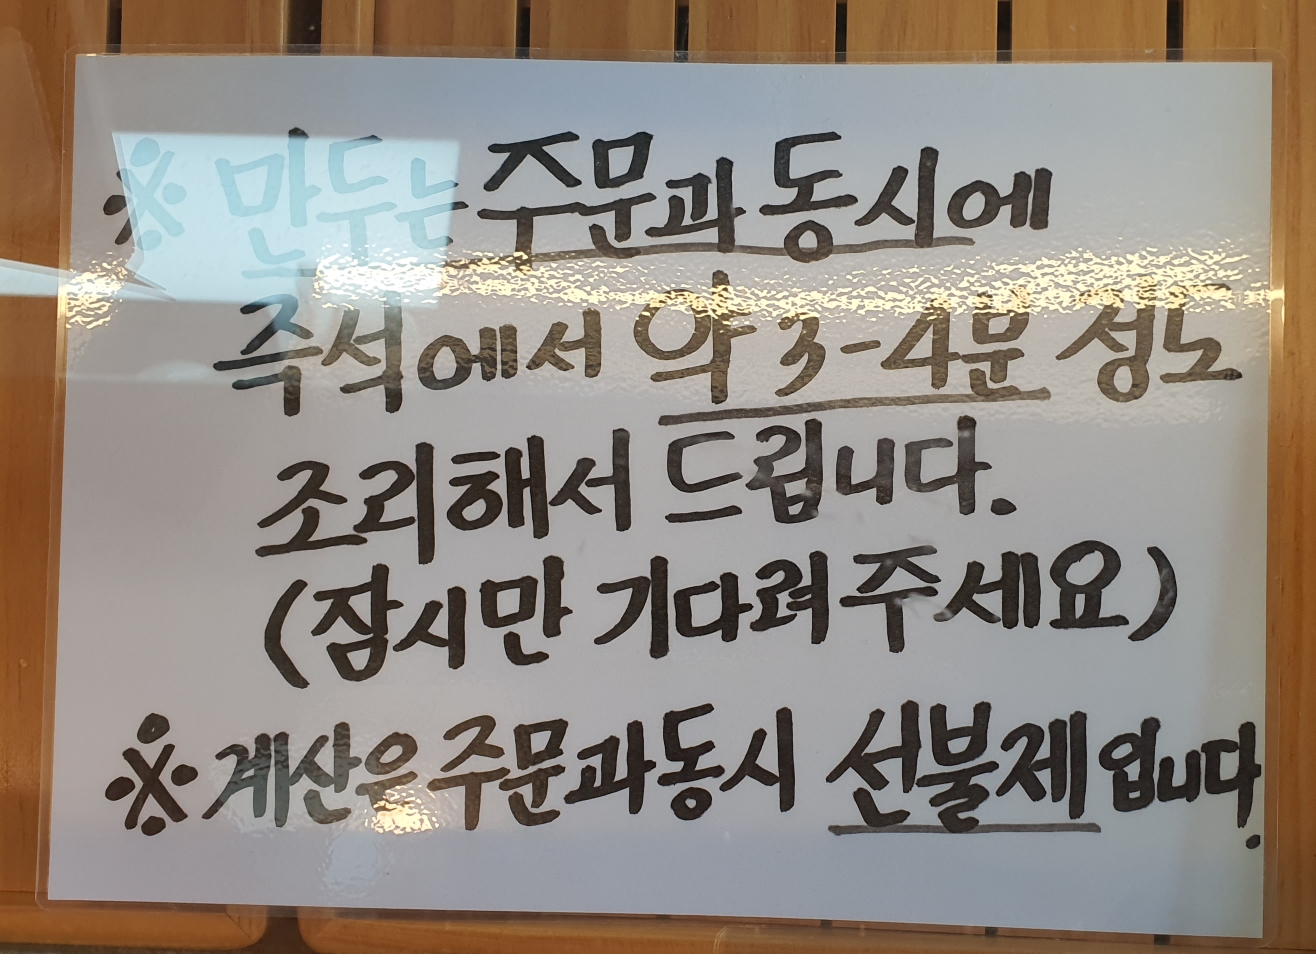 ※ 만두는 주문과 동시에
즉석에서 약 3-4분 정도
조리해서 드립니다.
(잠시만 기다려 주세요)
※ 계산은 주문과 동시 선불제 입니다.